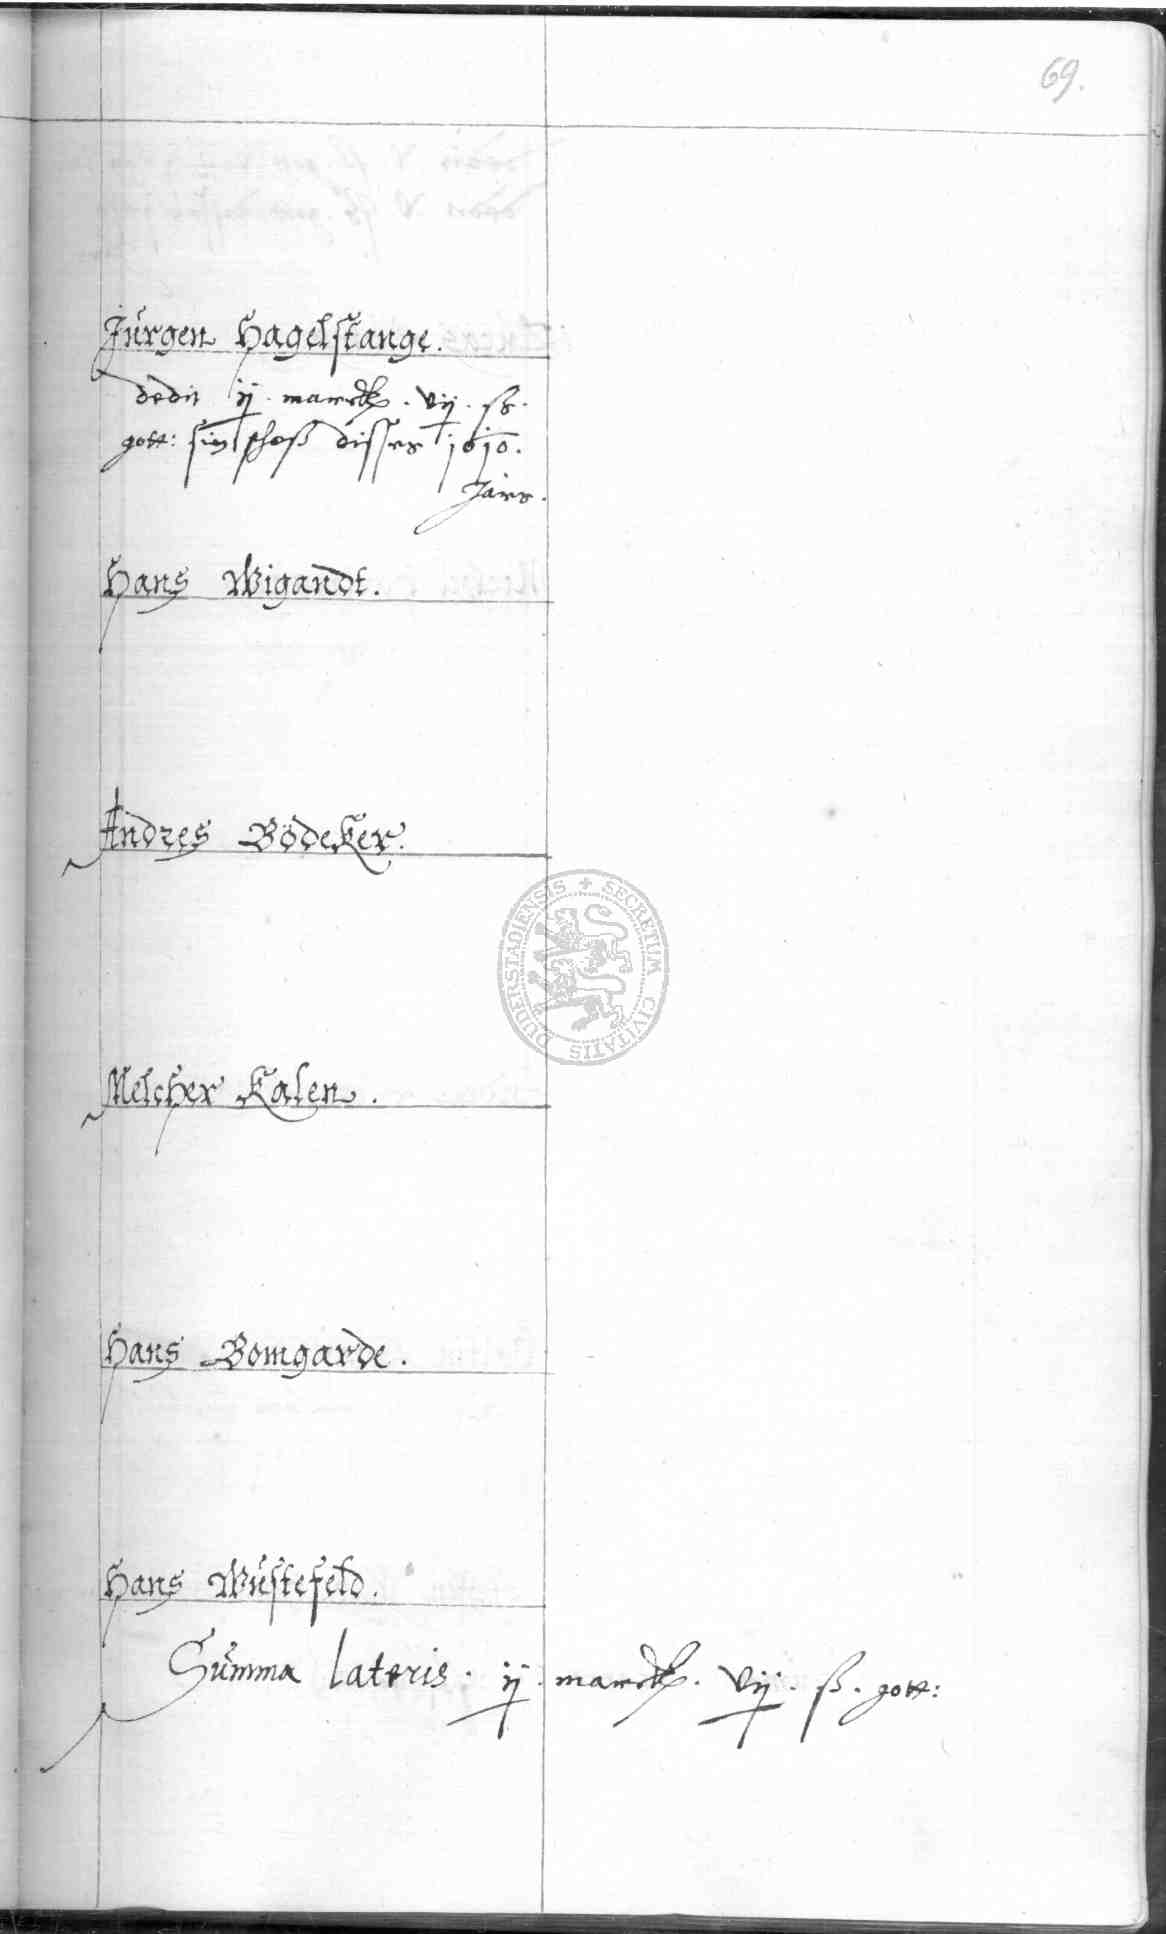 69.
Jürgen Hagelstange.
dedit ij. marck. vij. ß.
gott: sin schoß disses 1610.
Jars.
Hans Wigandt.
Andres Bödeker.
DUDERSTADIENSIS + SECRETUM CIVITATIS
Melcher Kalen.
Hans Bomgarde.
Hans Wüstefeld.
Summa lateris. ij. marck. vij. ß. gott: